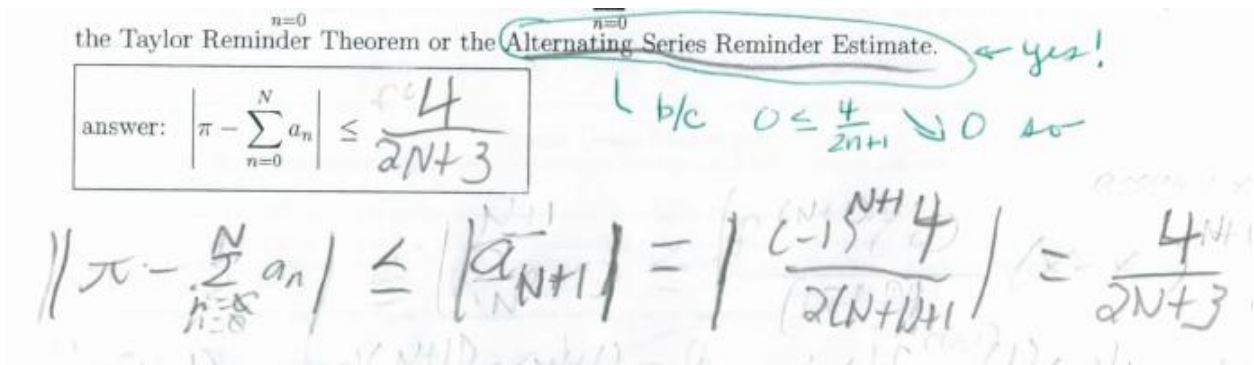 n=0 n=0
the Taylor Reminder Theorem or the Alternating Series Reminder Estimate. ← yes!
b/c 0 ≤ 4/(2n+1) ↘ 0 so
answer: |π − ∑_{n=0}^{N} a_n| ≤ 4/(2N+3)
|π − ∑_{n=0}^{N} a_n| ≤ |a_{N+1}| = |(-1)^{N+1} 4/(2(N+1)+1)| = 4/(2N+3)